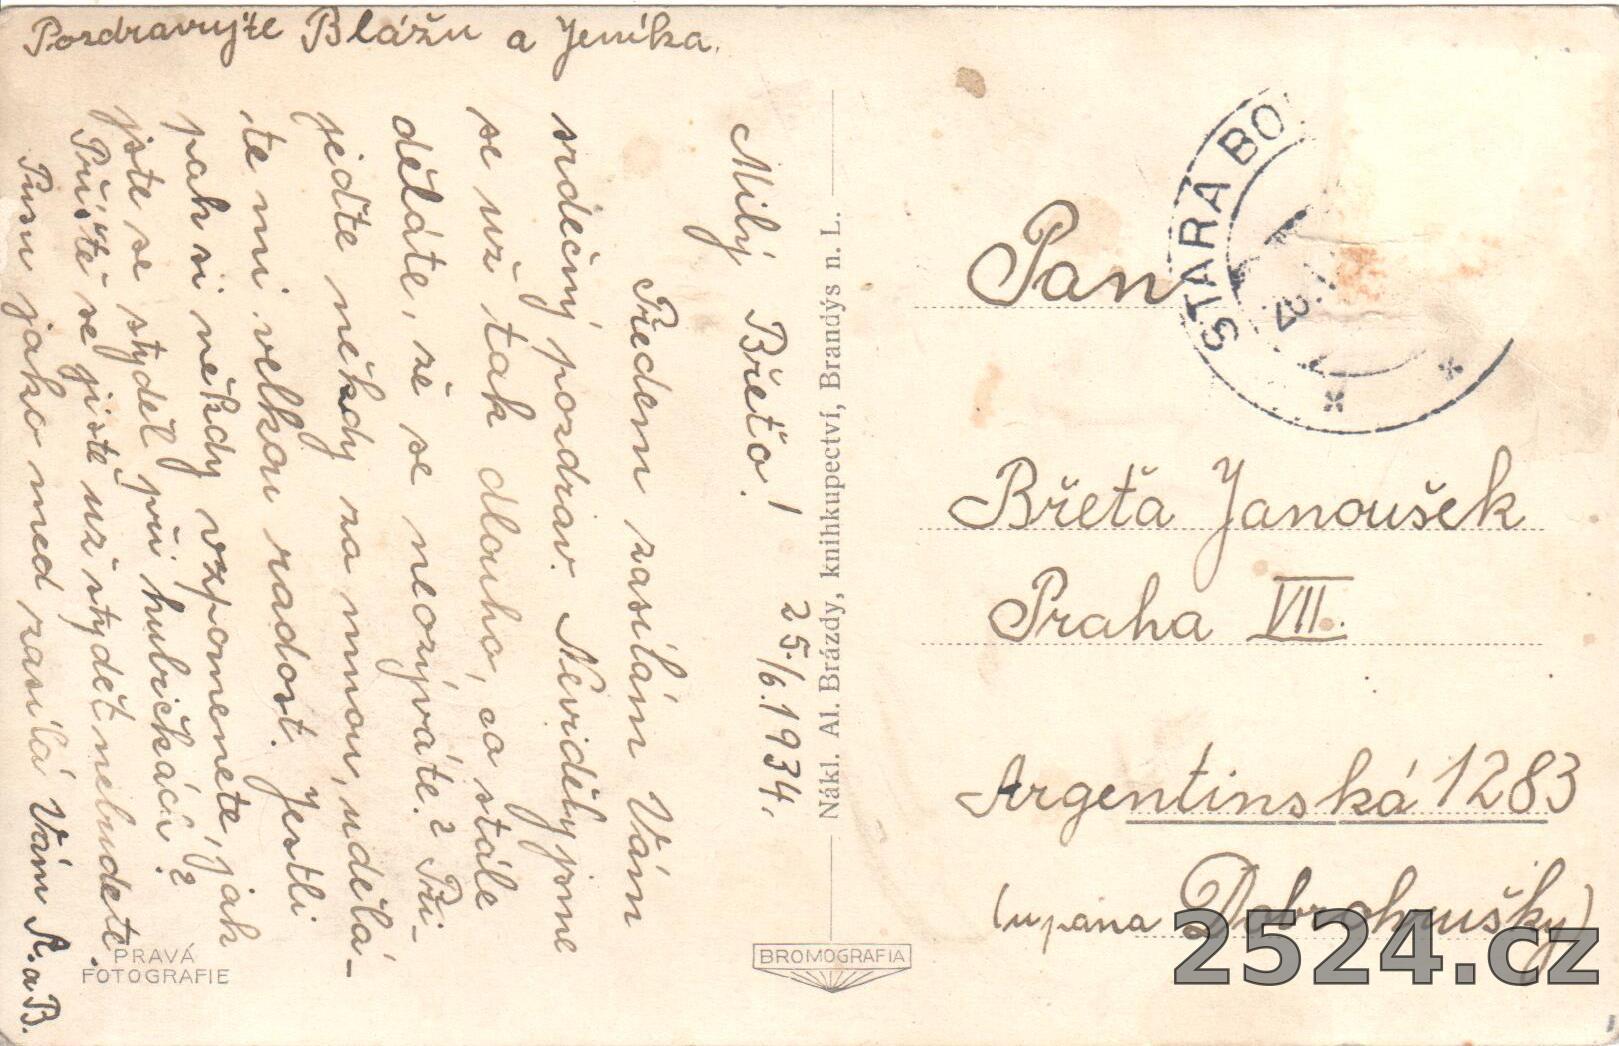 Pozdravujte Blážu a Jeníka.
Milý Břeťo! 25./6.1934.
Předem zasílám Vám
srdečný pozdrav. Neviděly jsme
se už tak dlouho, co stále
děláte, že se neozýváte? Při-
jeďte někdy za mnou, udělá-
te mi velkou radost. Jestli
pak si někdy vzpomenete, jak
jste se styděl při hubičkách?
Příště se jistě už stydět nebudete.
Pusu jako med zasílá Vám A. a B.
PRAVÁ
FOTOGRAFIE
Nákl. Al. Brázdy, knihkupectví, Brandýs n. L.
BROMOGRAFIA
STARÁ BO
Pan
Břeťa Janoušek
Praha VII.
Argentinská 1283
(u pana Dobrohrušky)
2524.cz